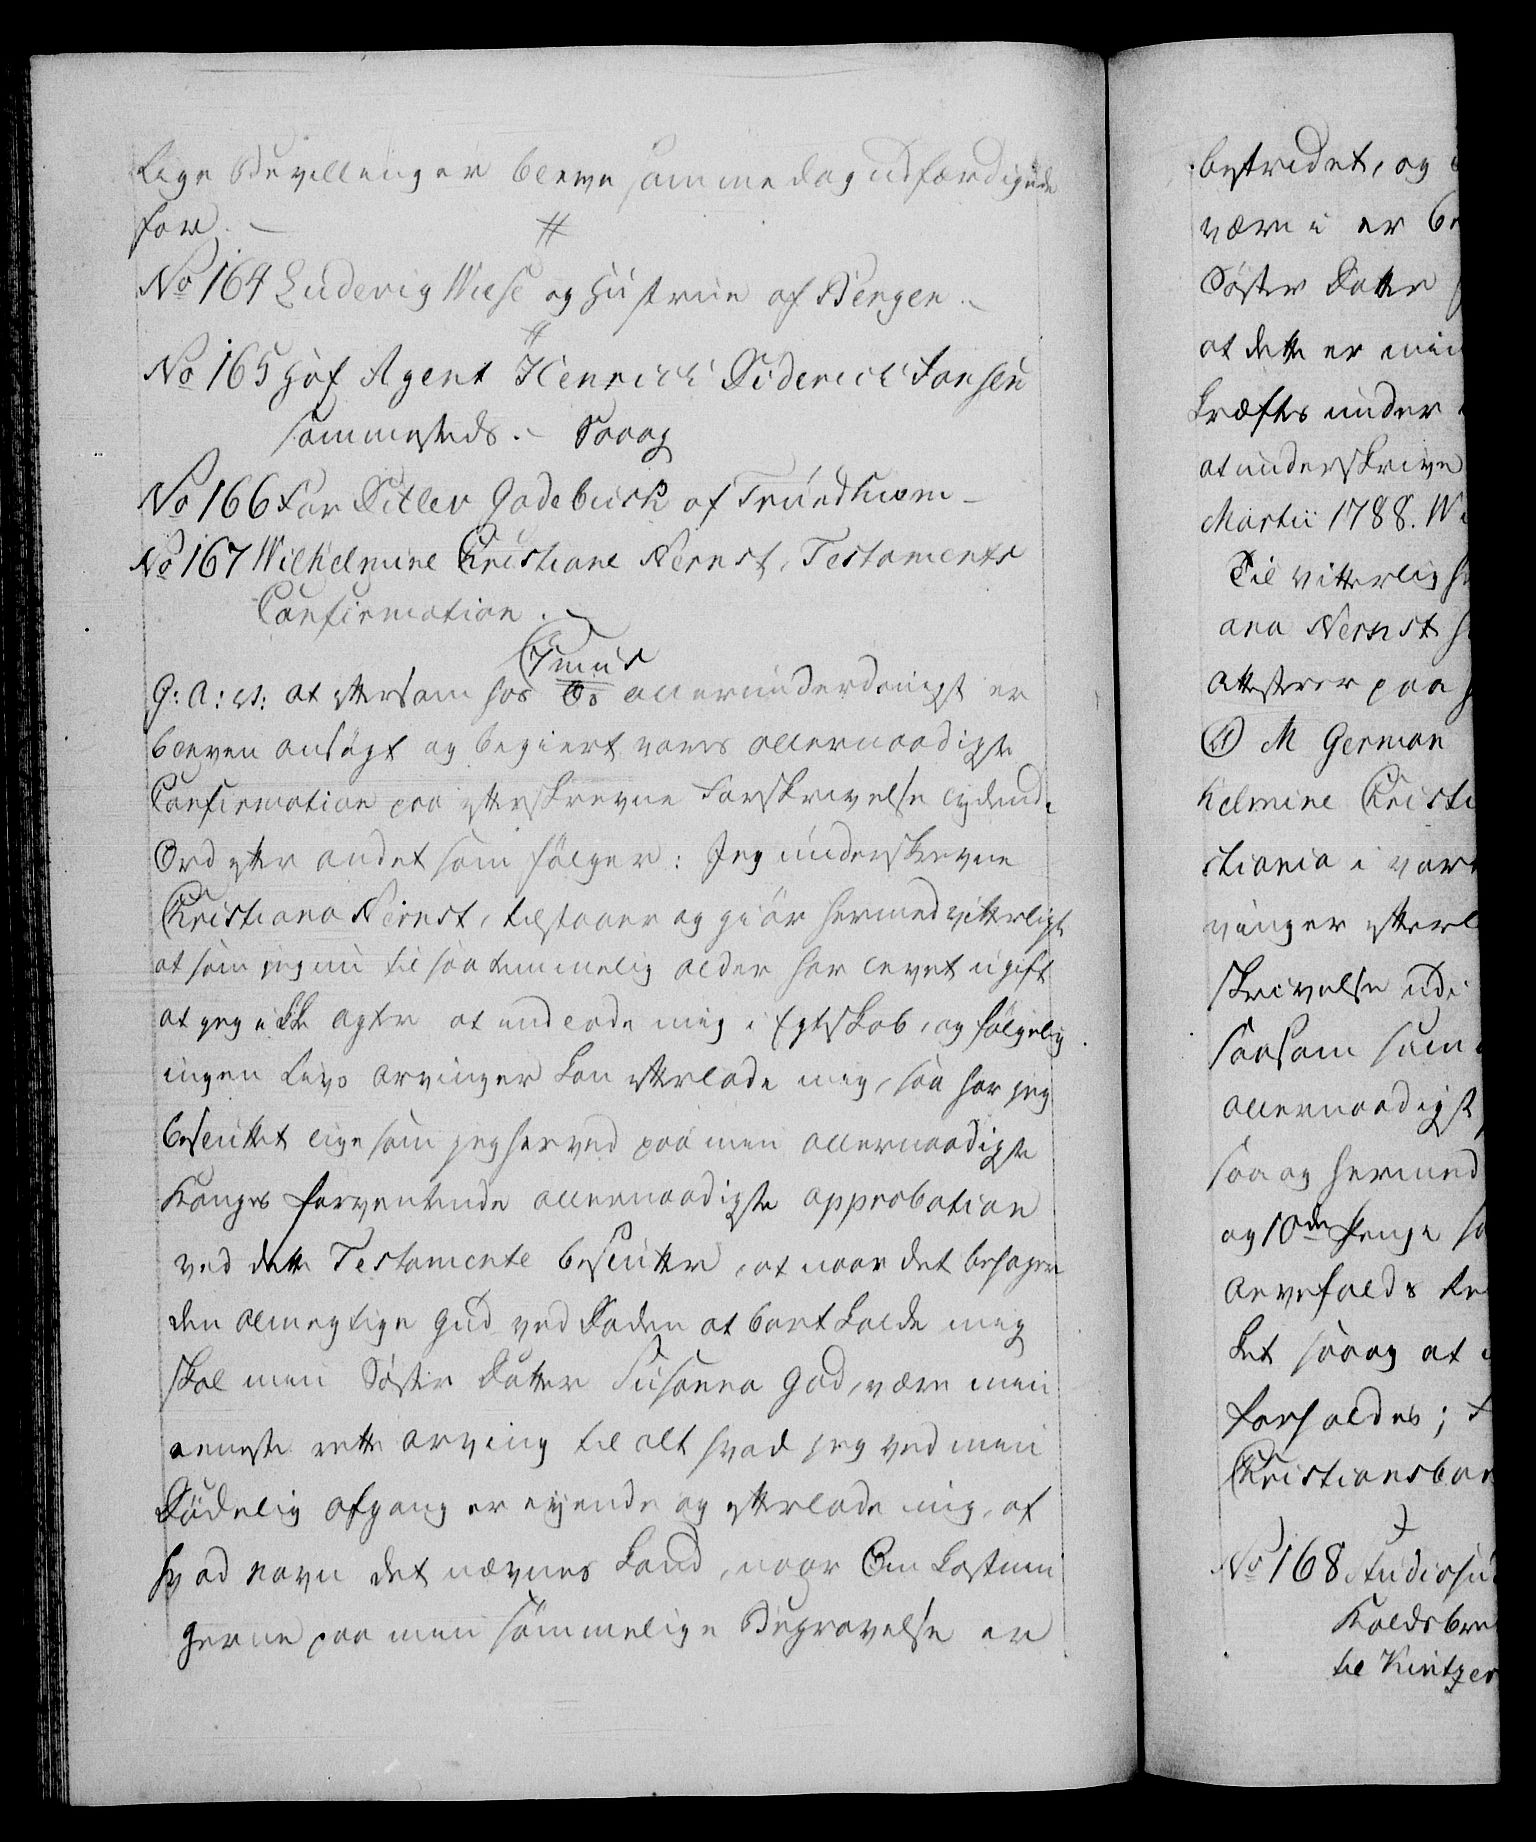 Lige Bevillinger bleve samme dag udfærdigede
for. —
No 164 Ludevig Wiese og Hustrue af Bergen. —
No 165 Hof Agent Henrich Diderich Jansen
sammesteds. — Saaog
No 166 For Ditlev Godebusch af Trundhiem —
No 167 Wilhelmine Christiane Nernst, Testaments
Confirmation. —
G: A: V: at eftersom hos Os allerunderdanigst er
bleven ansøgt og begiert vores allernaadigste
Confirmation paa efterskrevne Forskrivelse lydende
Ord efter andet som følger: Jeg underskrevne
Christiana Nernst, tilstaaer og giør hermed vitterligt
at som jeg nu til saa temmelig alder har levet ugift
at jeg ikke agter at indlade mig i Egteskab, og følgelig
ingen Livs arvinger kan efterlade mig, saa har jeg
besluttet lige som jeg herved paa min allernaadigste
Konges forventende allernaadigste approbation
ved dette Testamente beslutter, at naar det behager
den almegtige Gud ved Døden at bortkalde mig
skal min Søster Datter Susanna God, være min
eeneste rette arving til alt hvad jeg ved min
Dødelig afgang er eyende og efterlade mig, af
hvad navn det nævnes kand, naar Omkostnin
gerne paa min sømmelige Begravelse er
bestridet, og
være i er
Søster Datter
at dette er min
kræftes under
at underskrive
Martii 1788. W
Til vitterlig
ana Nernst
attesterer paa
M German
helmine Christi
stiania i vor
vinger efterl
skrivelse udi
saasom
allernaadigst
saa og hermed
og 10de Penge
Arvefalds
ket saaog at
forholdes;
Christiansbor
No 168 Studiosu
Koldsbre
til